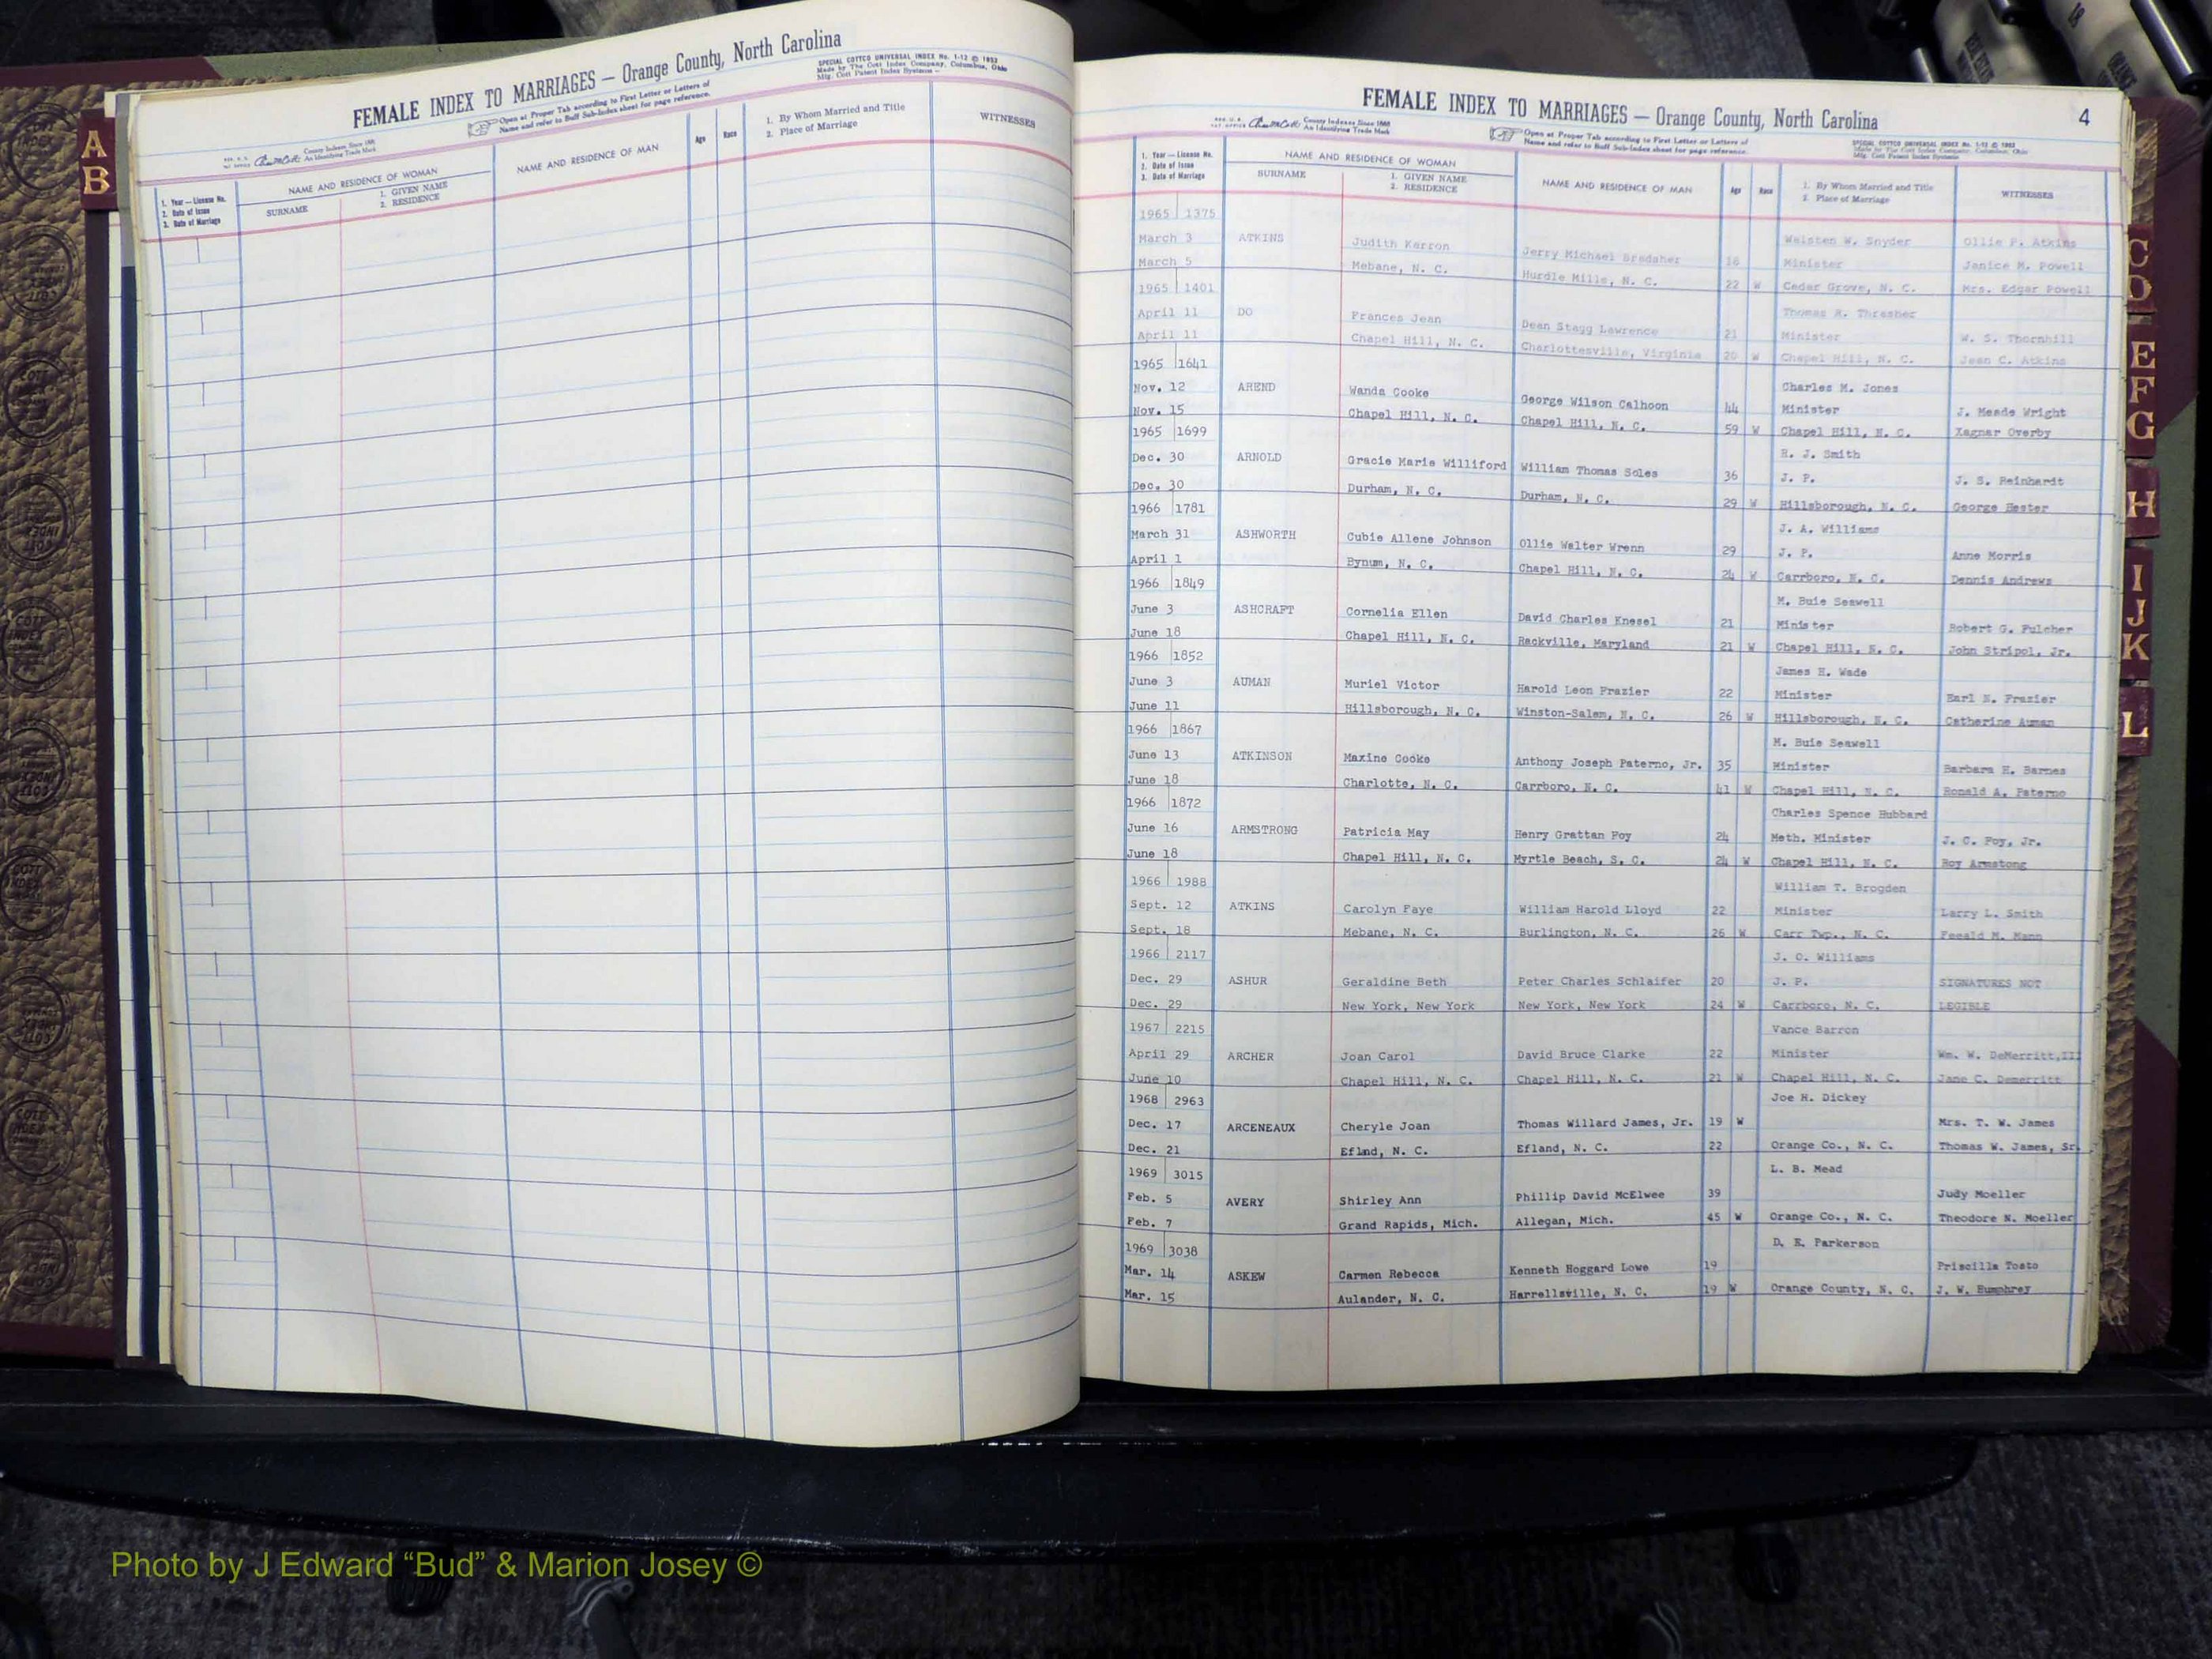 A
B
FEMALE INDEX TO MARRIAGES — Orange County, North Carolina
SPECIAL COTTCO UNIVERSAL INDEX No. 1-12 © 1952
Made by The Cott Index Company, Columbus, Ohio
Mfg. Cott Patent Index Systems —
Open at Proper Tab according to First Letter or Letters of
Name and refer to Buff Sub-Index sheet for page reference.
County Indexes Since 1888
An Identifying Trade Mark
1. Year — License No.
2. Date of Issue
3. Date of Marriage
NAME AND RESIDENCE OF WOMAN
SURNAME
1. GIVEN NAME
2. RESIDENCE
NAME AND RESIDENCE OF MAN
Age
Race
1. By Whom Married and Title
2. Place of Marriage
WITNESSES
FEMALE INDEX TO MARRIAGES — Orange County, North Carolina
4
County Indexes Since 1888
An Identifying Trade Mark
Open at Proper Tab according to First Letter or Letters of
Name and refer to Buff Sub-Index sheet for page reference.
1. Year — License No.
2. Date of Issue
3. Date of Marriage
NAME AND RESIDENCE OF WOMAN
SURNAME
1. GIVEN NAME
2. RESIDENCE
NAME AND RESIDENCE OF MAN
Age
Race
1. By Whom Married and Title
2. Place of Marriage
WITNESSES
1965 1375
March 3 ATKINS Judith Karron Jerry Michael Bradsher 18 Walsten W. Snyder Ollie P. Atkins
March 5 Mebane, N. C. Hurdle Mills, N. C. 22 W Minister Janice M. Powell
Cedar Grove, N. C. Mrs. Edgar Powell
1965 1401 Thomas R. Thrasher
April 11 DO Frances Jean Dean Stagg Lawrence 21 Minister W. S. Thornhill
April 11 Chapel Hill, N. C. Charlottesville, Virginia 20 W Chapel Hill, N. C. Jean C. Atkins
1965 1641 Charles M. Jones
Nov. 12 AREND Wanda Cooke George Wilson Calhoon 44 Minister J. Meade Wright
Nov. 15 Chapel Hill, N. C. Chapel Hill, N. C. 59 W Chapel Hill, N. C. Xagnar Overby
1965 1699 R. J. Smith
Dec. 30 ARNOLD Gracie Marie Williford William Thomas Soles 36 J. P. J. S. Reinhardt
Dec. 30 Durham, N. C. Durham, N. C. 29 W Hillsborough, N. C. George Hester
1966 1781 J. A. Williams
March 31 ASHWORTH Cubie Allene Johnson Ollie Walter Wrenn 29 J. P. Anne Morris
April 1 Bynum, N. C. Chapel Hill, N. C. 24 W Carrboro, N. C. Dennis Andrews
1966 1849 M. Buie Seawell
June 3 ASHCRAFT Cornelia Ellen David Charles Knesel 21 Minister Robert G. Fulcher
June 18 Chapel Hill, N. C. Rackville, Maryland 21 W Chapel Hill, N. C. John Stripol, Jr.
1966 1852 James H. Wade
June 3 AUMAN Muriel Victor Harold Leon Frazier 22 Minister Earl N. Frazier
June 11 Hillsborough, N. C. Winston-Salem, N. C. 26 W Hillsborough, N. C. Catherine Auman
1966 1867 M. Buie Seawell
June 13 ATKINSON Maxine Cooke Anthony Joseph Paterno, Jr. 35 Minister Barbara H. Barnes
June 18 Charlotte, N. C. Carrboro, N. C. 41 W Chapel Hill, N. C. Ronald A. Paterno
1966 1872 Charles Spence Hubbard
June 16 ARMSTRONG Patricia May Henry Grattan Foy 24 Meth. Minister J. C. Foy, Jr.
June 18 Chapel Hill, N. C. Myrtle Beach, S. C. 24 W Chapel Hill, N. C. Roy Armstong
1966 1988 William T. Brogden
Sept. 12 ATKINS Carolyn Faye William Harold Lloyd 22 Minister Larry L. Smith
Sept. 18 Mebane, N. C. Burlington, N. C. 26 W Carr Twp., N. C. M. Mann
1966 2117 J. O. Williams
Dec. 29 ASHUR Geraldine Beth Peter Charles Schlaifer 20 J. P. SIGNATURES NOT
Dec. 29 New York, New York New York, New York 24 W Carrboro, N. C. LEGIBLE
1967 2215 Vance Barron
April 29 ARCHER Joan Carol David Bruce Clarke 22 Minister Wm. W. DeMerritt,III
June 10 Chapel Hill, N. C. Chapel Hill, N. C. 21 W Chapel Hill, N. C. Jane C. Demerritt
1968 2963 Joe H. Dickey
Dec. 17 ARCENEAUX Cheryle Joan Thomas Willard James, Jr. 19 W Mrs. T. W. James
Dec. 21 Eflnd, N. C. Efland, N. C. 22 Orange Co., N. C. Thomas W. James, Sr.
1969 3015 L. B. Mead
Feb. 5 AVERY Shirley Ann Phillip David McElwee 39 Judy Moeller
Feb. 7 Grand Rapids, Mich. Allegan, Mich. 45 W Orange Co., N. C. Theodore N. Moeller
1969 3038 D. E. Parkerson
Mar. 14 ASKEW Carmen Rebecca Kenneth Hoggard Lowe 19 Priscilla Tosto
Mar. 15 Aulander, N. C. Harrellsville, N. C. 19 W Orange County, N. C. J. W. Humphrey
C
D
E
F
G
H
I
J
K
L
18
Photo by J Edward “Bud” & Marion Josey ©